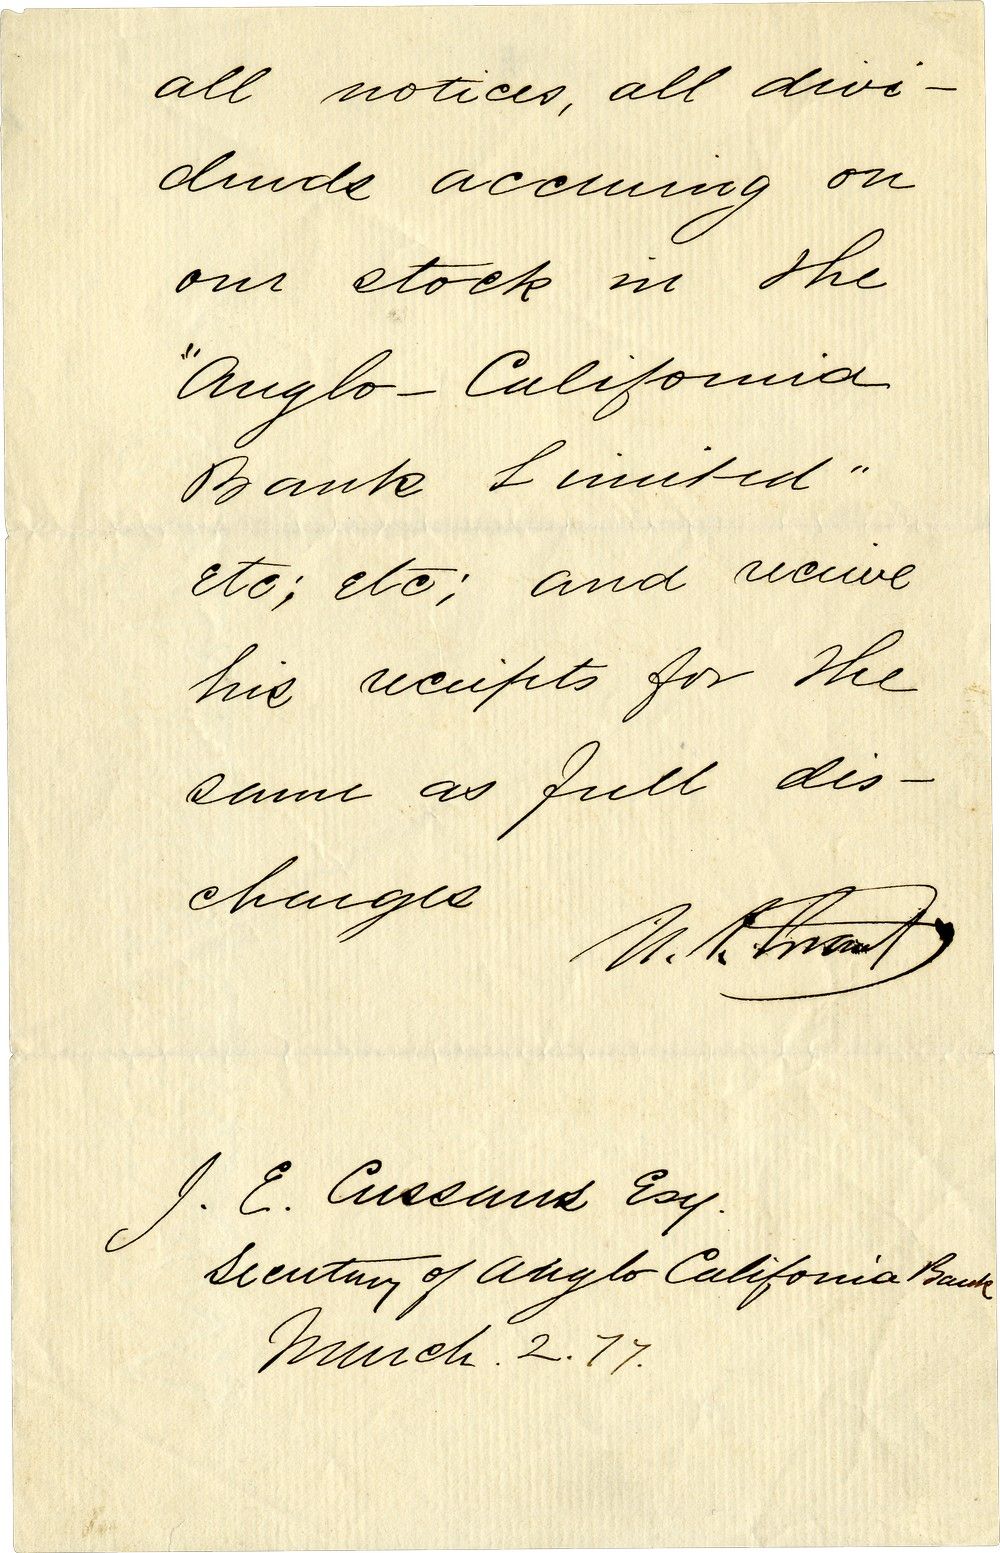 all notices, all divi-
dends accruing on
our stock in the
"Anglo-California
Bank Limited"
etc; etc; and receive
his receipts for the
same as full dis-
charges
U. S. Grant
J. E. Cussans Esq.
Secretary of Anglo California Bank
March. 2. 77.